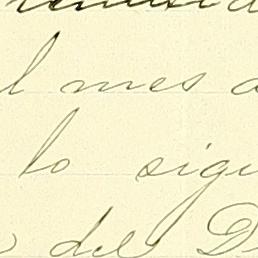 l mes a
lo sigu
del D